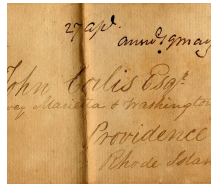 27 apl.
annd. 19 may
John Corlis Esqr.
Marietta & Washington
Providence
Rhode Islan